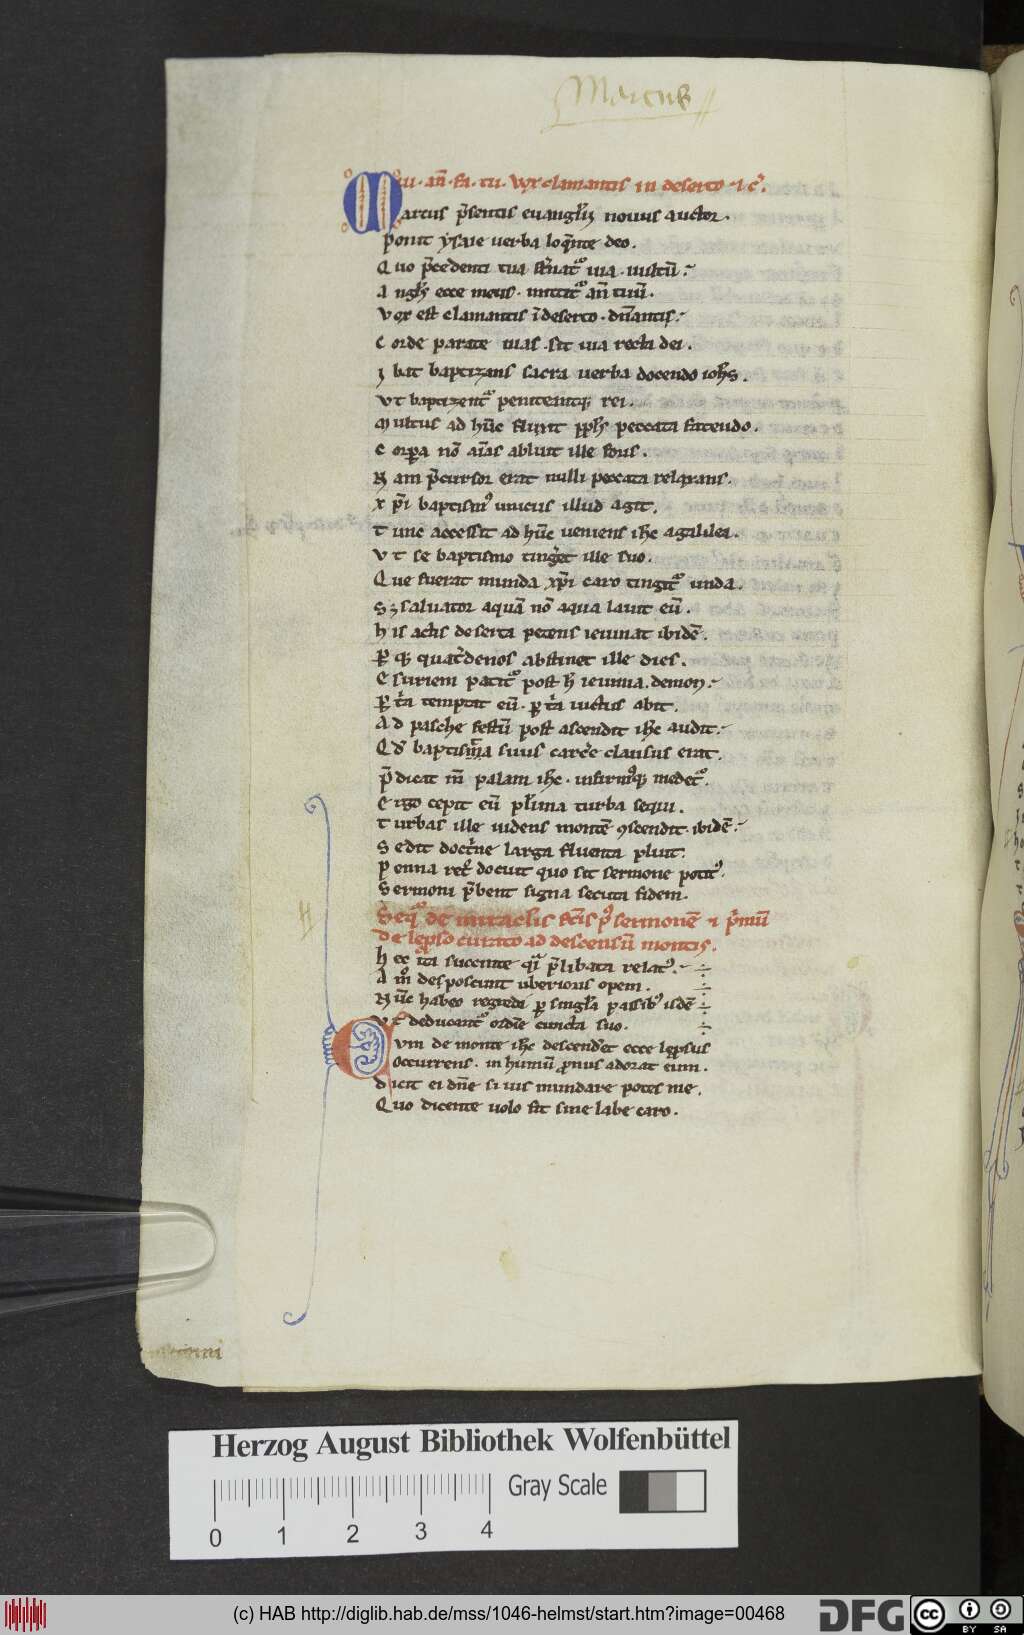 Marcus
uia. añ. fa. tu. vox clamantis in deserto ⁊ c̄.
Marcus p̄sentis euanglij nouus auctor.
Ponit ysaie uerba loq̄nte deo.
Quo p̄cedenti tua st̄natᷣ uia. uultū.
Angls ecce meus. mittitᷣ añ tuū.
Vox est clamantis ī deserto. dn̄antis.
Corde parate uias. sit uia recta dei.
Ibat baptizans sacra uerba docendo iohs.
Vt baptizentᷣ peniteantq; rei.
Multus ad hūc fluxit ppls peccata fatendo.
Corpa nō aīas abluit ille foris.
Nam p̄cursor erat nulli peccata relaxans.
Xpī baptismꝰ unicus illud agit.
Tunc accessit ad hūc ueniens ihc a galilea.
Vt se baptismo tingēt ille suo.
Que fuerat munda xpī caro tingitᷣ unda.
Sꝫ saluator aquā nō aqua lauit eū.
His actis deserta petens ieiunat ibidē.
Per qꝫ quat̄denos abstinet ille dies.
Esuriem patitᷣ post h ieiunia. demon.
Per t̄a temptat eū. per t̄a uictus abit.
Ad pasche festū post ascendit ihc audit.
Qd baptisma suus carc̄e clausus erat.
P̄dicat in palam ihc. infirmosq; medetᷣ.
Ergo cepit eū plima turba sequi.
Turbas ille uidens montē ꝯscendit. ibidē.
Sedit doct̄ne larga fluenta pluit.
Penna rec̄ docuit quo sit sermone potitꝰ.
Sermoni p̄bent signa secuta fidem.
Seqᷣ de miraclis fc̄is pꝰ sermonē ⁊ p̄mū
de lepso curato ad descensū montis.
Hec ita succinte qᷓ p̄libata relatꝰ.
Am̄ desposcunt uberioris opem.
Nūc habeo regredi per singla passibꝰ isdē
Vt deducantᷣ ordīe cuncta suo.
Cum de monte ihc descendēt ecce leprosus
Occurrens. in humū pronus adorat eum.
Dicit ei dn̄e si uis mundare potes me.
Quo dicente uolo fit sine labe caro.
Herzog August Bibliothek Wolfenbüttel
Gray Scale
0 1 2 3 4
(c) HAB http://diglib.hab.de/mss/1046-helmst/start.htm?image=00468
DFG
cc BY SA